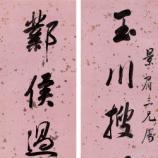 景眉三兄屬
玉川搜
鄴侯過